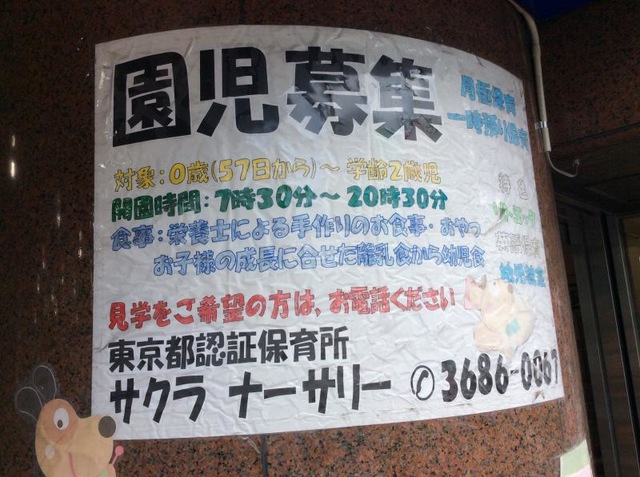 園児募集
月極保育
一時預り保育
対象:0歳(57日から)~学齢2歳児
開園時間:7時30分~20時30分
食事:栄養士による手作りのお食事・おやつ
お子様の成長に合せた離乳食から幼児食
見学をご希望の方は、お電話ください
東京都認証保育所
サクラ ナーサリー ✆3686-0067